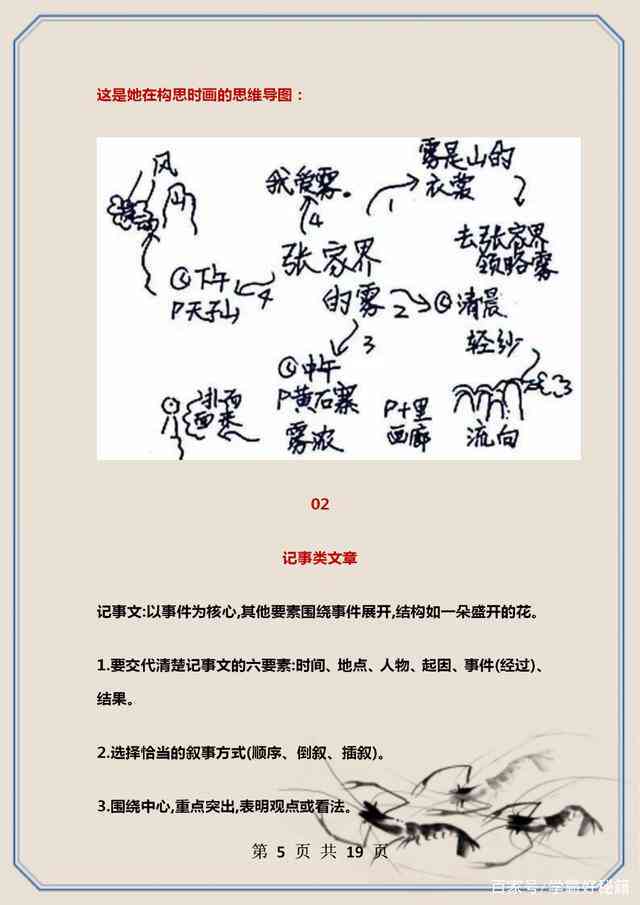 这是她在构思时画的思维导图：
风
山
我爱雾。
4
1
雾是山的
衣裳
去张家界
领略雾
张家界
的雾
下午
P天子山
4
2
清晨
轻纱
3
中午
P黄石寨
雾浓
扑面
面来
P十里
画廊
流向
02
记事类文章
记事文:以事件为核心,其他要素围绕事件展开,结构如一朵盛开的花。
1.要交代清楚记事文的六要素:时间、地点、人物、起因、事件(经过)、
结果。
2.选择恰当的叙事方式(顺序、倒叙、插叙)。
3.围绕中心,重点突出,表明观点或看法。
第 5 页 共 19 页
百家号/学霸好秘籍